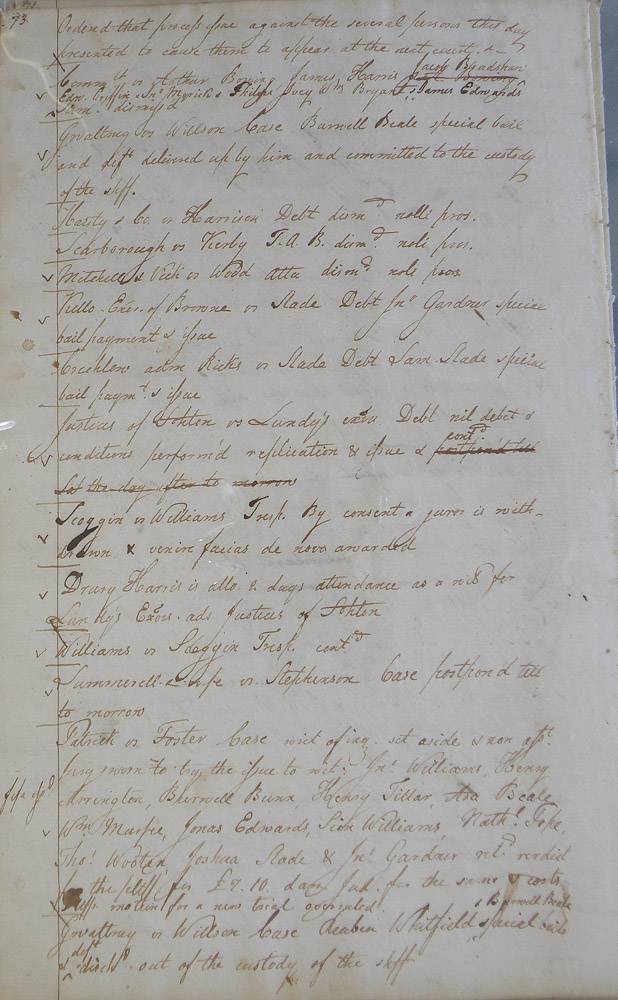 73
Ordered that process issue against the several persons this day
presented to cause them to appear at the next court, &c
Commth. vs Arthur Bowing James Harris Jacob Bradshaw
Edw. Griffin & Jno. Myrick & Philip Ivey Wm Bryant & James Edwards
Sum. dismissd
Gwaltney vs Willson Case Burwell Beale special bail
and deft. delivered up by him and committed to the custody
of the shff.
Hasty & Co. vs Harrison Debt dismd. nolle pros.
Scarborough vs Kerby T. A. B. dismd. nole pros.
Mitchell & Vick vs Wood Atta dismd. nole pros
Kello Exor. of Browne vs Slade Debt Jno Gardner special
bail payment & issue
adm Ricks vs Slade Debt Sam. Slade special
bail paymt. & issue
Justices of Sohton vs Lundy's exors Debt nil debet &
conditions perform'd replication & issue & contd. postpon'd till
Sat the day after to morrow
Scoggin vs Williams Tresp. By consent a juror is with-
drawn & venire facias de novo awarded
Drury Harris is allo. 2 days attendance as a wits for
Lundy's Exors. ads Justices of Sohton
Williams vs Scoggin Tresp. contd
Summerell & wife vs Stephenson Case postpon'd till
to morrow
Patrick vs Foster Case writ of inq. set aside & non asst.
Jury sworn to try the issue to wit: Jno Williams, Henry
fifa issd
Arrington, Burwell Bunn, Henry Tillar, Asa Beale
Wm. Murfee, Jonas Edwards, Sion Williams, Nathl. Pope,
Thos. Wooten Joshua Slade & Jno Gardner retd. verdict
for the pltff. for £7. 10. dam Jud. for the same & costs
motion for a new trial overruled
& Burwell Beale
Gwaltney vs Willson Case Reuben Whitfield special bail
& deft disch'd out of the custody of the shff